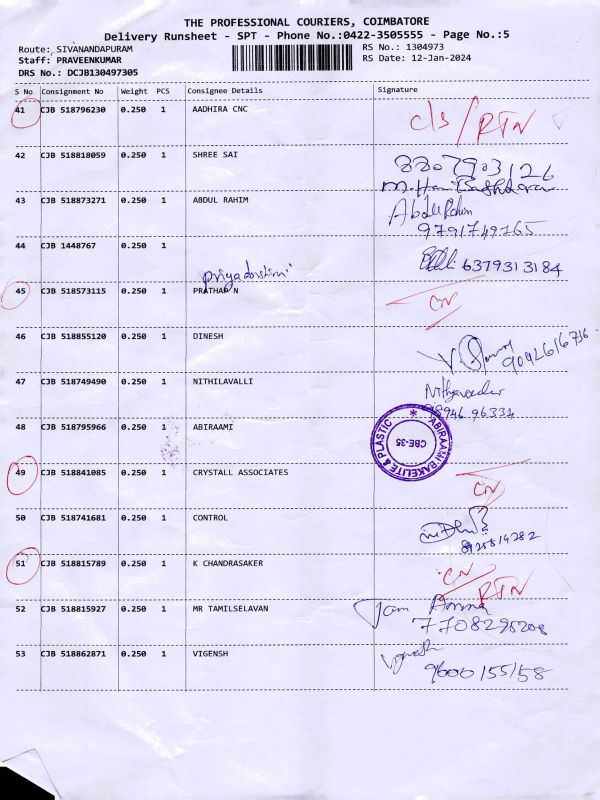 THE PROFESSIONAL COURIERS, COIMBATORE
Delivery Runsheet - SPT - Phone No.:0422-3505555 - Page No.:5
Route: SIVANANDAPURAM
RS No.: 1304973
Staff: PRAVEENKUMAR
RS Date: 12-Jan-2024
DRS No.: DCJB130497305
S No Consignment No Weight PCS Consignee Details Signature
41 CJB 518796230 0.250 1 AADHIRA CNC c/s / RTN
42 CJB 518818059 0.250 1 SHREE SAI 8807903126
43 CJB 518873271 0.250 1 ABDUL RAHIM Abdul Rahim
9791749765
44 CJB 1448767 0.250 1 6379313184
Priyadarshini
45 CJB 518573115 0.250 1 PRATHAP N CN
46 CJB 518855120 0.250 1 DINESH 9092616736
47 CJB 518749490 0.250 1 NITHILAVALLI
98946 96334
48 CJB 518795966 0.250 1 ABIRAAMI ABIRAAMI BAKELITE & PLASTIC
CBE-35
49 CJB 518841085 0.250 1 CRYSTALL ASSOCIATES CN
50 CJB 518741681 0.250 1 CONTROL
8925814282
51 CJB 518815789 0.250 1 K CHANDRASAKER CN / RTN
52 CJB 518815927 0.250 1 MR TAMILSELAVAN
7708295208
53 CJB 518862871 0.250 1 VIGENSH Vignesh
9600 155158